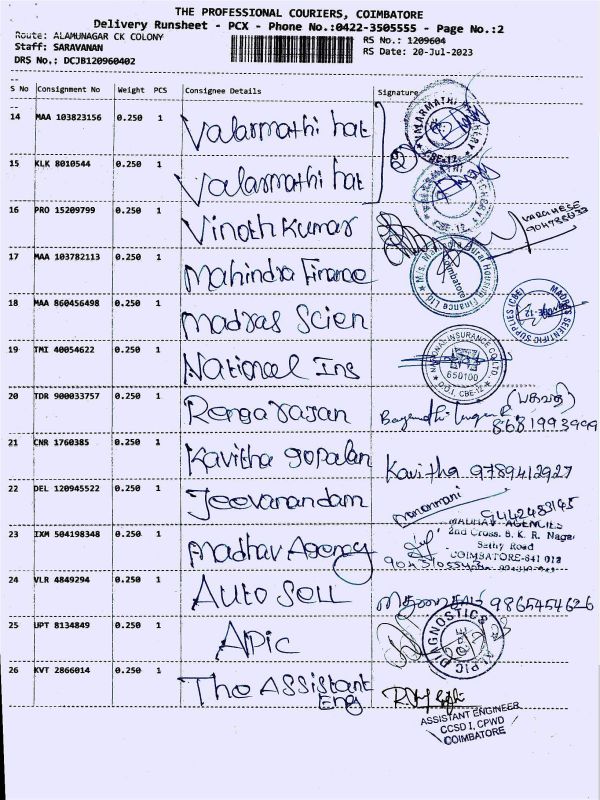 THE PROFESSIONAL COURIERS, COIMBATORE
Delivery Runsheet - PCX - Phone No.:0422-3505555 - Page No.:2
Route: ALAMUNAGAR CK COLONY
RS No.: 1209604
Staff: SARAVANAN
RS Date: 20-Jul-2023
DRS No.: DCJB120960402
S No Consignment No Weight PCS Consignee Details Signature
14 MAA 103823156 0.250 1 Valarmathi hat
15 KLK 8010544 0.250 1 Valarmathi hat
16 PRO 15209799 0.250 1 Vinoth Kumar VARGHESE
17 MAA 103782113 0.250 1 Mahindra Finance
18 MAA 860456498 0.250 1 Madras Scien
MADRAS SCIENTIFIC SUPPLIES (CBE)
19 TMI 40054622 0.250 1 National Ins
NATIONAL INSURANCE CO LTD
650100
D.O.I, CBE-12
20 TDR 900033757 0.250 1 Rengarasan
8681993999
21 CNR 1760385 0.250 1 Kavitha gopalan Kavitha 9789412927
22 DEL 120945522 0.250 1 Jeevanandam
9442483145
23 IXM 504198348 0.250 1 Madhav Agency
MADHAV AGENCIES
2nd Cross, B. K. R. Nagar
Sathy Road
COIMBATORE-641 012
24 VLR 4849294 0.250 1 AUTO SELL 9865454626
25 UPT 8134849 0.250 1 APic
ALPIC DIAGNOSTICS
26 KVT 2866014 0.250 1 The ASSistant
Eng
ASSISTANT ENGINEER
CCSD I, CPWD
COIMBATORE